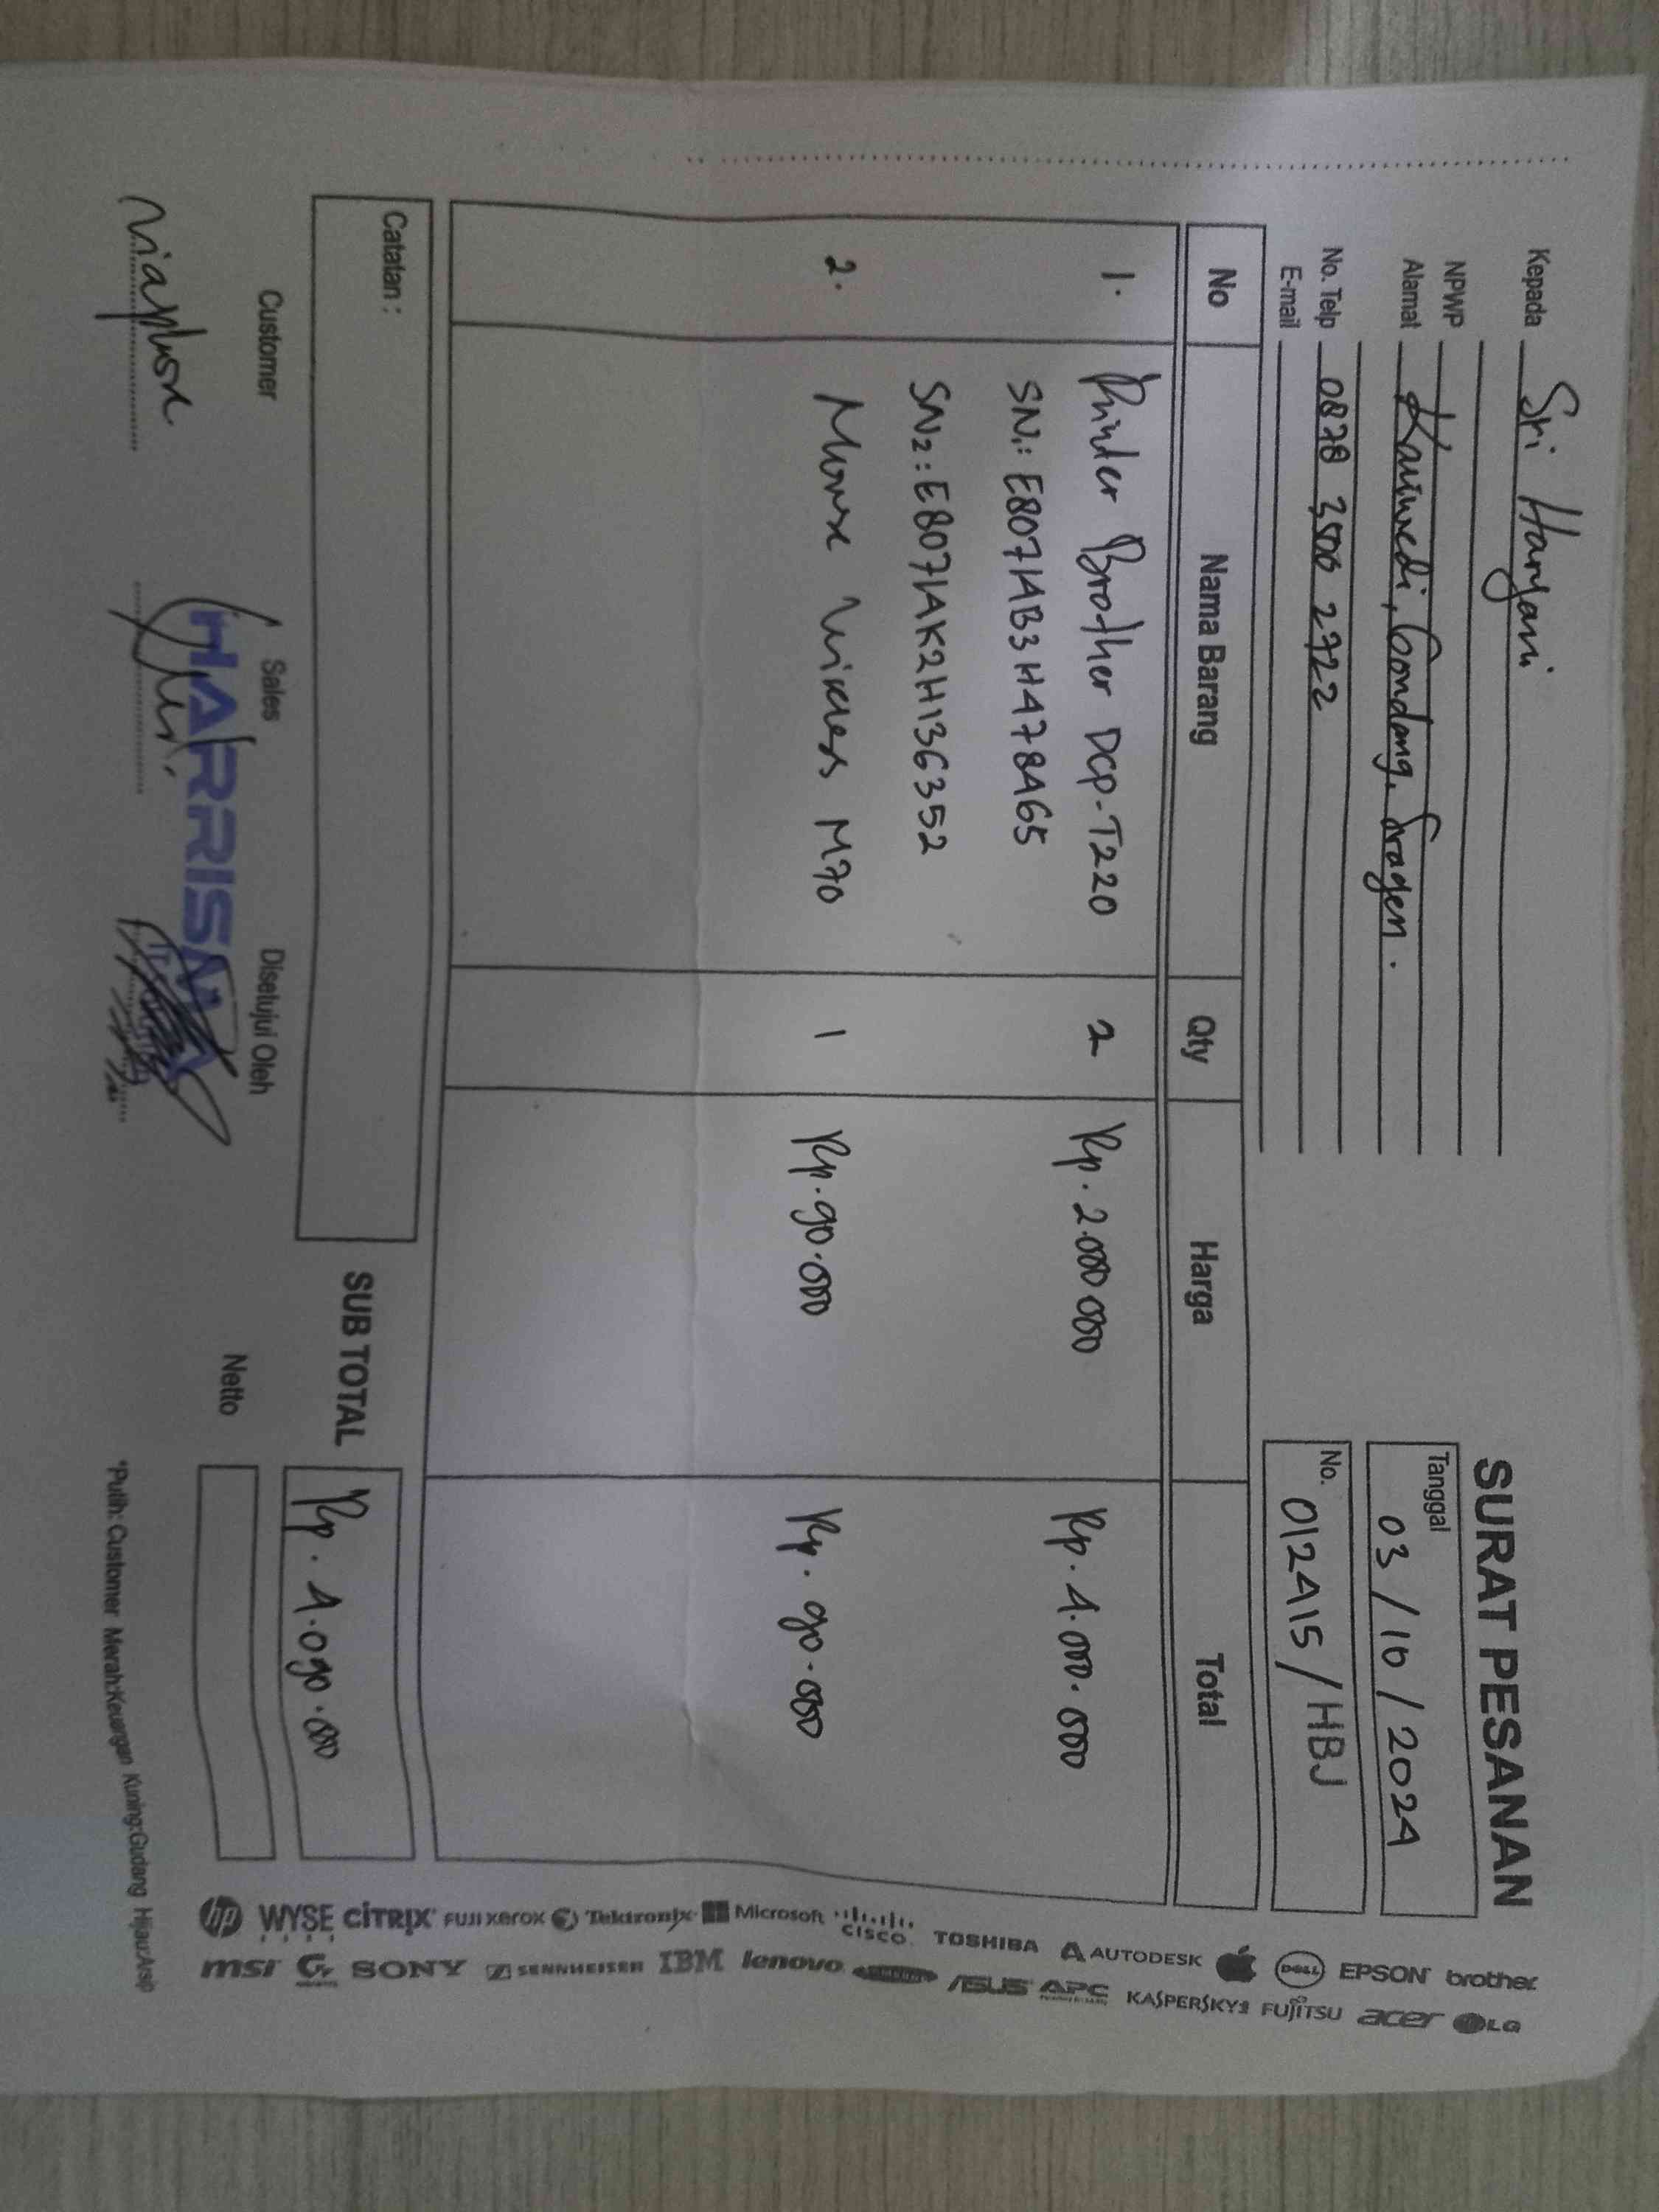 SURAT PESANAN
Kepada Sri Haryani
NPWP
Alamat Karimredi, Gondang, Sragen.
No. Telp 0878 3500 2722
E-mail
Tanggal 03/10/2024
No. 012415/HBJ
No Nama Barang Qty Harga Total
1. Printer Brother DCP-T220 2 Rp. 2.000.000 Rp. 4.000.000
SN1: E80714B3H478465
SN2: E8071AK2H136352
2. Mouse M70 1 Rp. 90.000 Rp. 90.000
Catatan :
SUB TOTAL Rp. 4.090.000
Netto
Customer Sales Disetujui Oleh
HARRISMA
*Putih: Customer Merah:Keuangan Kuning:Gudang Hijau:Arsip
hp WYSE CITRIX FUJI xerox Tektronix Microsoft CISCO TOSHIBA AUTODESK DELL EPSON brother
msi SONY SENNHEISER IBM lenovo ASUS APC KASPERSKY FUJITSU acer LG